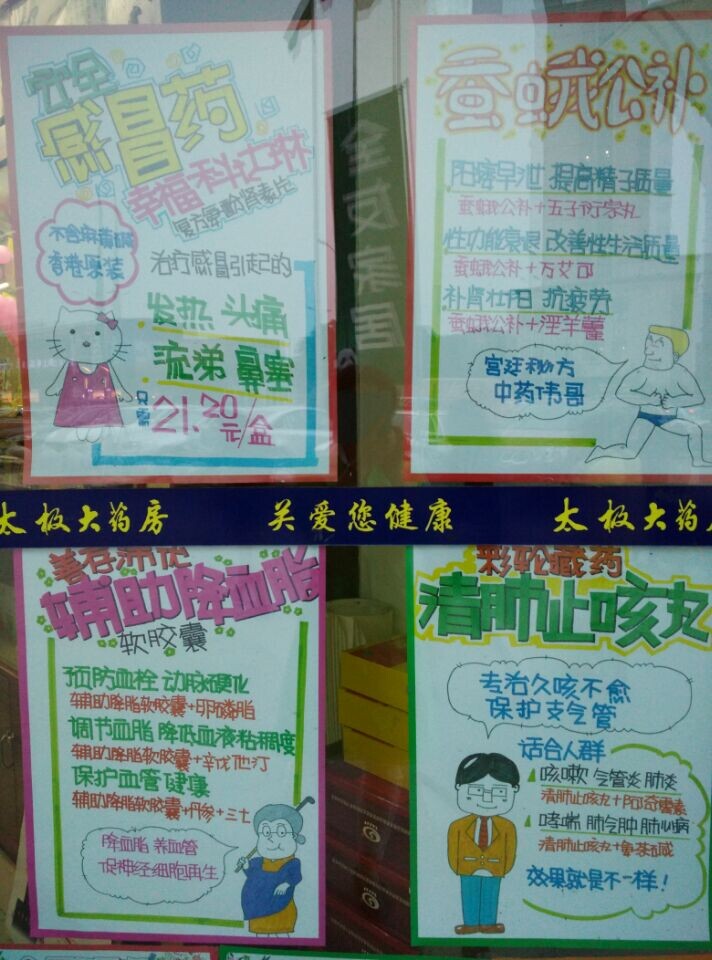 安全
感冒药
幸福科达琳
复方氨酚肾素片
不含麻黄碱
香港原装
治疗感冒引起的
发热 头痛
流涕 鼻塞
只需
21.20元/盒
蚕蛾公补
阳痿早泄 提高精子质量
蚕蛾公补+五子衍宗丸
性功能衰退 改善性生活质量
蚕蛾公补+万艾可
补肾壮阳 抗疲劳
蚕蛾公补+淫羊藿
宫廷秘方
中药伟哥
全友家居
太极大药房 关爱您健康 太极大药房
善存沛优
辅助降血脂
软胶囊
预防血栓 动脉硬化
辅助降脂软胶囊+卵磷脂
调节血脂 降低血液粘稠度
辅助降脂软胶囊+辛伐他汀
保护血管健康
辅助降脂软胶囊+丹参+三七
降血脂 养血管
促神经细胞再生
彩轮藏药
清肺止咳丸
专治久咳不愈
保护支气管
适合人群
咳嗽 气管炎 肺炎
清肺止咳丸+阿奇霉素
哮喘 肺气肿 肺心病
清肺止咳丸+氨茶碱
效果就是不一样！